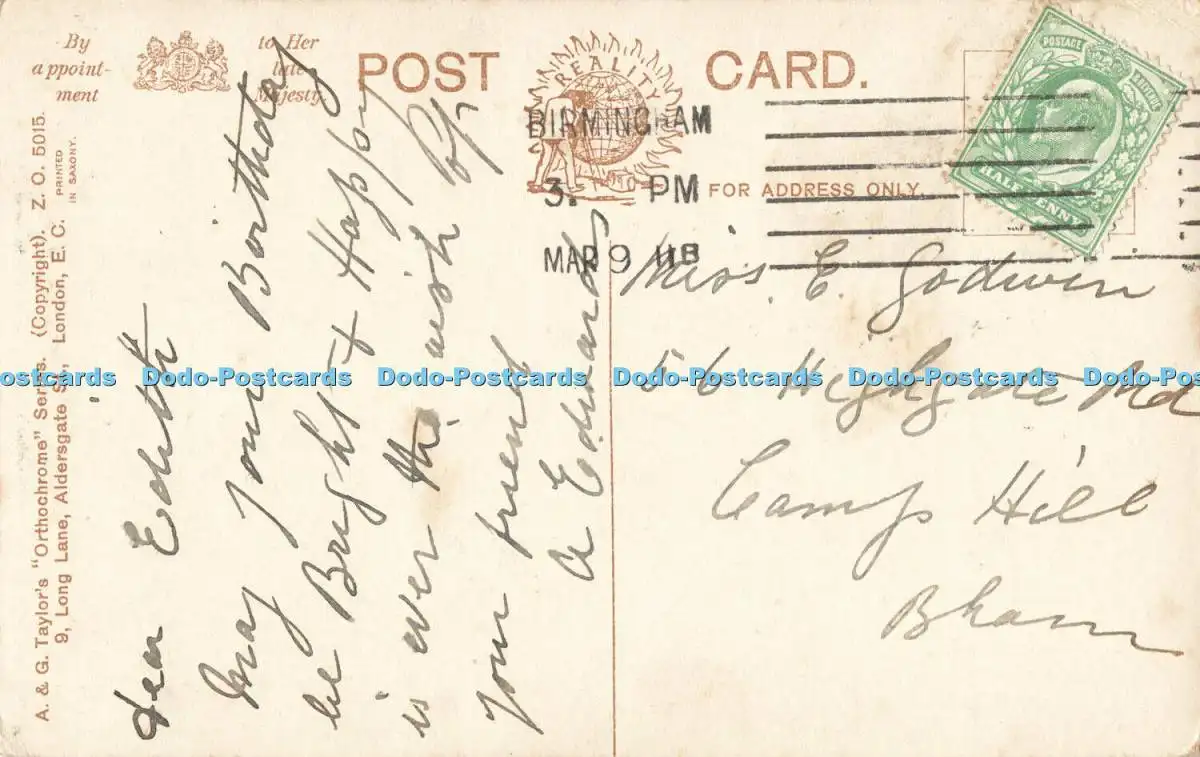 By
appoint-
ment
to Her
late
Majesty
POST CARD.
REALITY
FOR ADDRESS ONLY.
BIRMINGHAM
3. PM
MAR 9 11B
POSTAGE
HALFPENNY
A. & G. Taylor's "Orthochrome" Series. (Copyright). Z. O. 5015.
9, Long Lane, Aldersgate St., London, E. C.
PRINTED
IN SAXONY.
Dear Edith
may your Birthday
be Bright & Happy
is ever the wish of
your friend
A Edwards
Miss. E. Godwin
Highgate Rd
Camp Hill
Bham
Dodo-Postcards Dodo-Postcards Dodo-Postcards Dodo-Postcards Dodo-Postcards